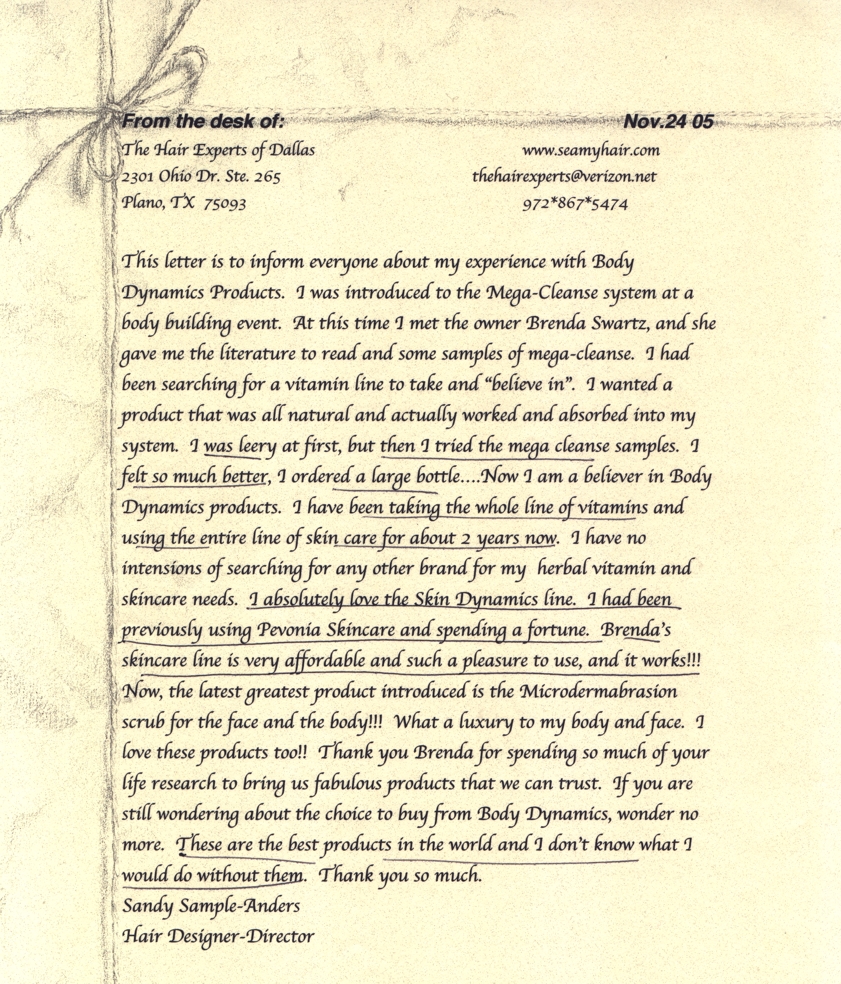 From the desk of: Nov.24 05
The Hair Experts of Dallas www.seamyhair.com
2301 Ohio Dr. Ste. 265 thehairexperts@verizon.net
Plano, TX 75093 972*867*5474
This letter is to inform everyone about my experience with Body
Dynamics Products. I was introduced to the Mega-Cleanse system at a
body building event. At this time I met the owner Brenda Swartz, and she
gave me the literature to read and some samples of mega-cleanse. I had
been searching for a vitamin line to take and “believe in”. I wanted a
product that was all natural and actually worked and absorbed into my
system. I was leery at first, but then I tried the mega cleanse samples. I
felt so much better, I ordered a large bottle….Now I am a believer in Body
Dynamics products. I have been taking the whole line of vitamins and
using the entire line of skin care for about 2 years now. I have no
intensions of searching for any other brand for my herbal vitamin and
skincare needs. I absolutely love the Skin Dynamics line. I had been
previously using Pevonia Skincare and spending a fortune. Brenda's
skincare line is very affordable and such a pleasure to use, and it works!!!
Now, the latest greatest product introduced is the Microdermabrasion
scrub for the face and the body!!! What a luxury to my body and face. I
love these products too!! Thank you Brenda for spending so much of your
life research to bring us fabulous products that we can trust. If you are
still wondering about the choice to buy from Body Dynamics, wonder no
more. These are the best products in the world and I don't know what I
would do without them. Thank you so much.
Sandy Sample-Anders
Hair Designer-Director